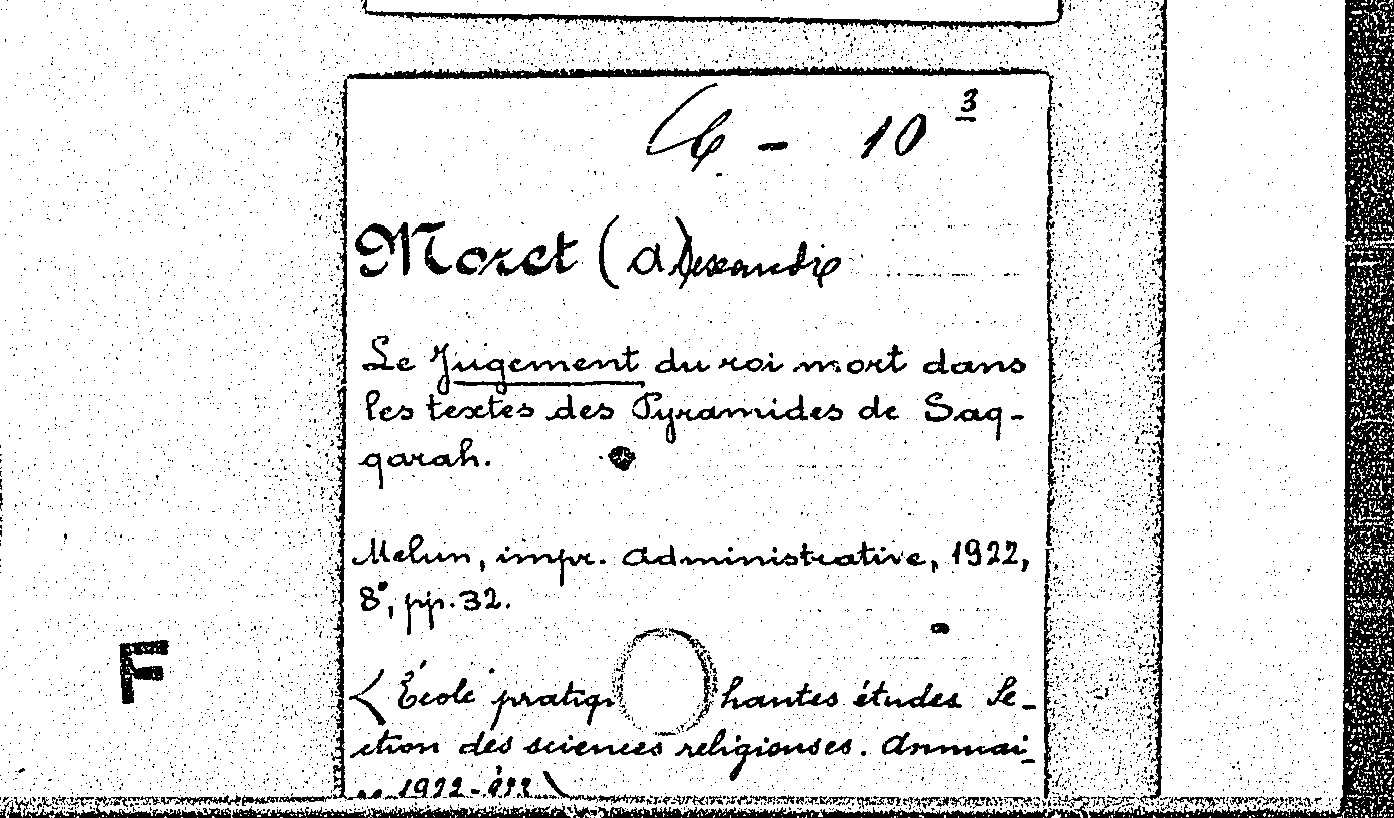 - 10 3
Moret (A)lexandre
Le Jugement du roi mort dans
les textes des Pyramides de Saq-
qarah.
Melun, impr. administrative, 1922,
8°, pp. 32.
F
< École pratiq hautes études Se-
ction des sciences religieuses. Annuai-
re 1922-